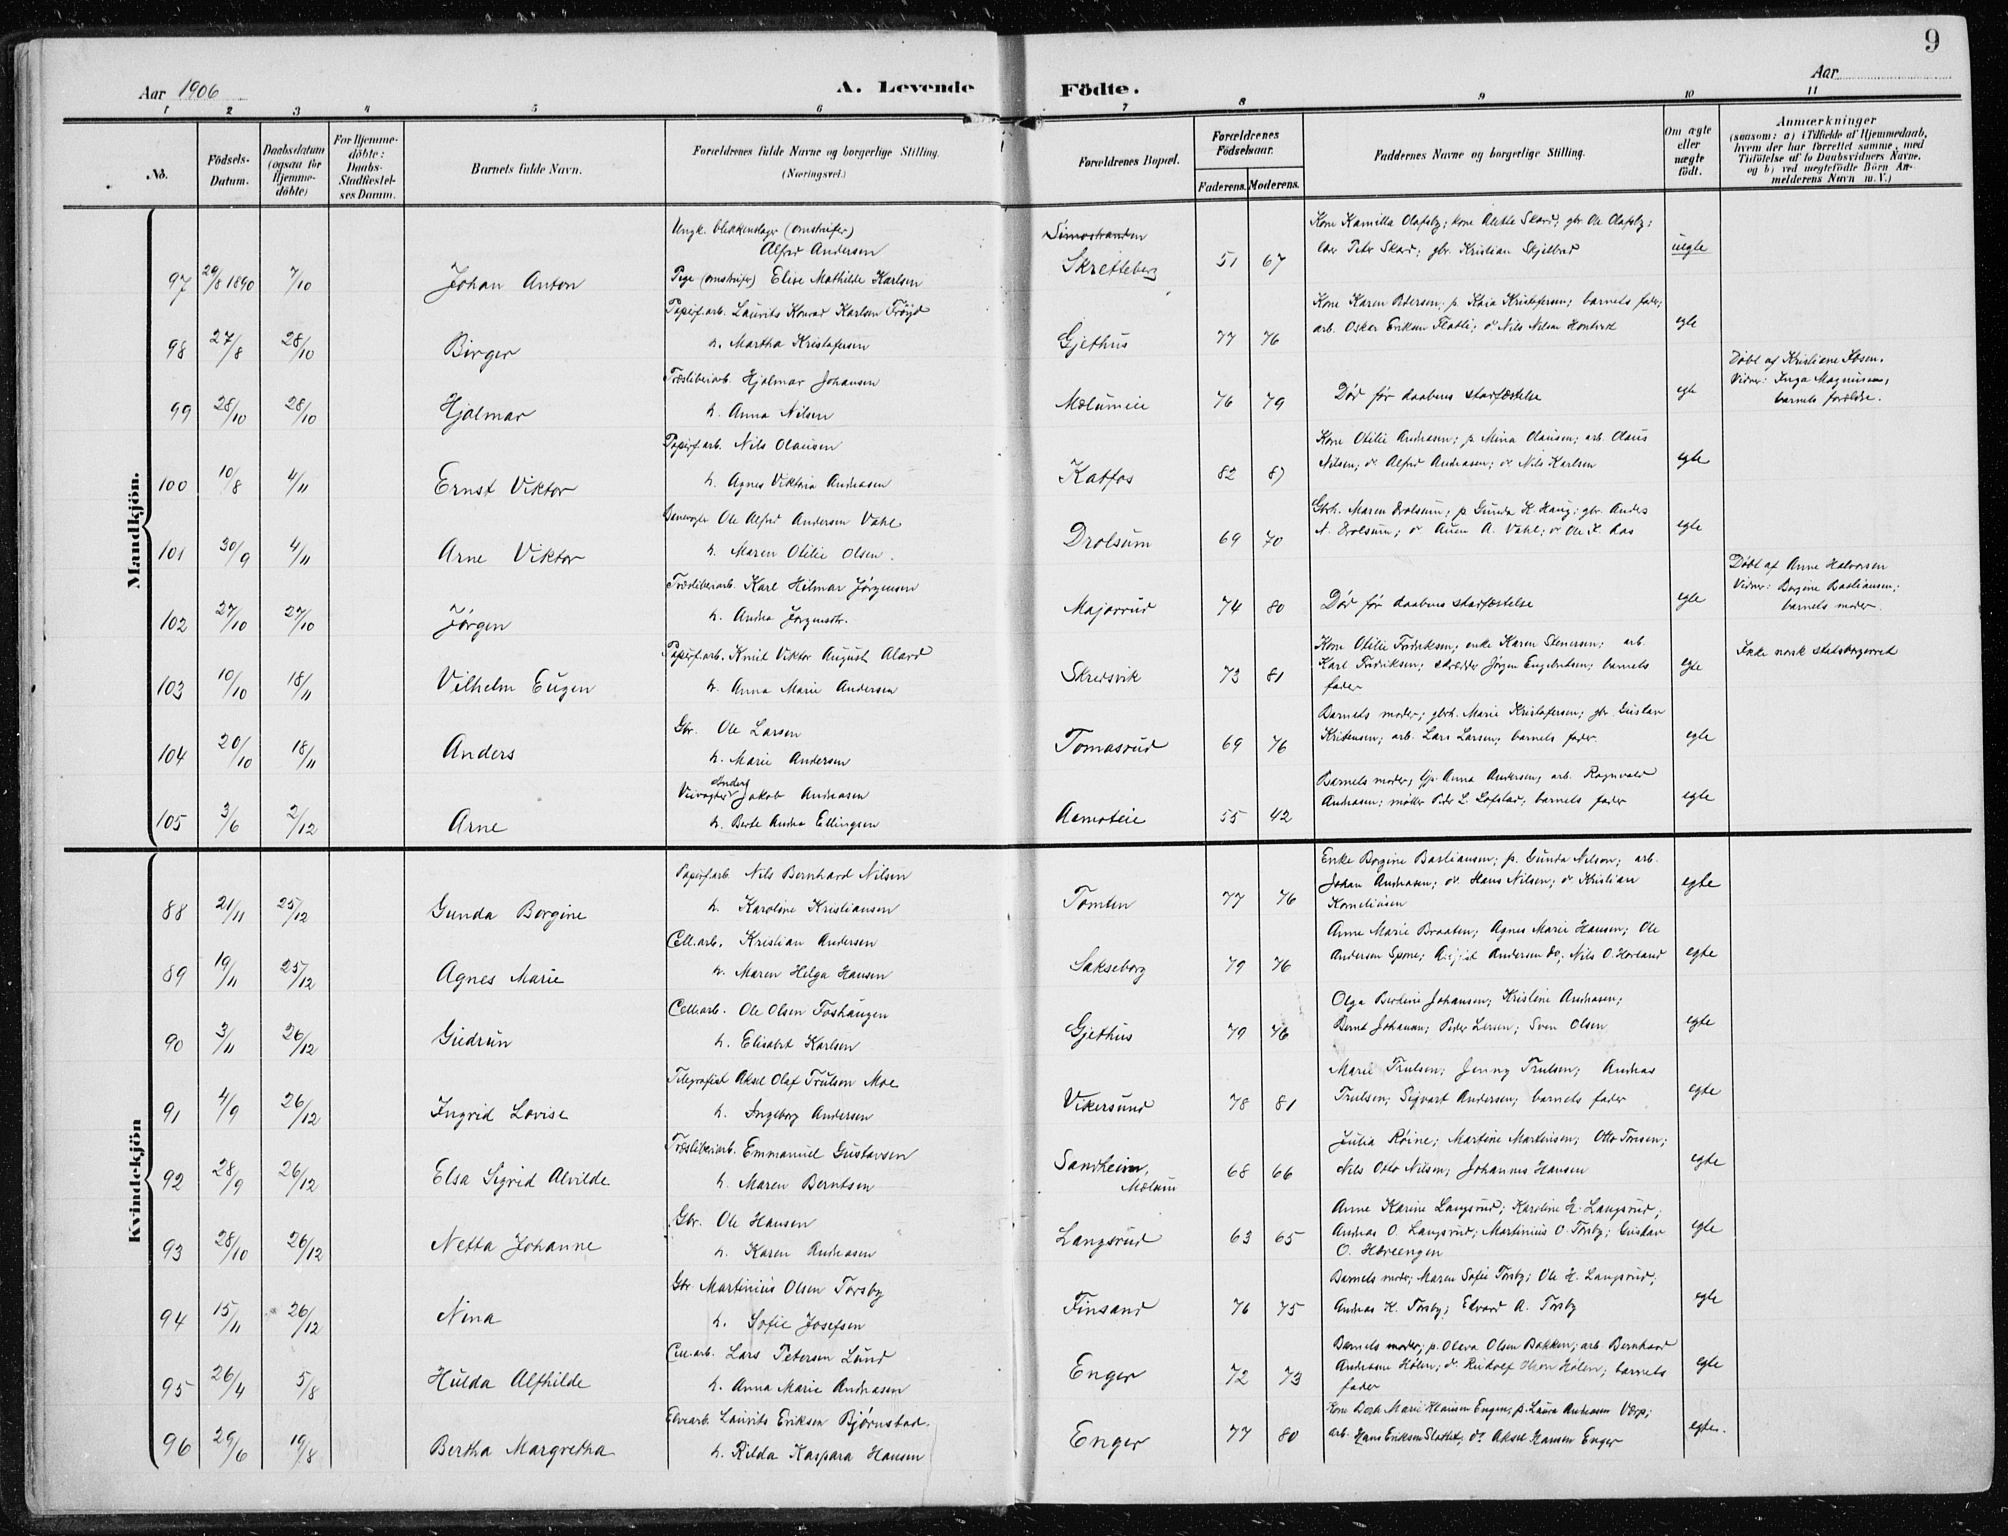 9
Aar 1906
A. Levende Födte.
Aar
1 2 3 4 5 6 7 8 9 10 11
No.
Födsels-Datum.
Daabsdatum (ogsaa for Hjemme-döbte)
For Hjemme-döbte: Daabs-Stadfæstel-ses Datum.
Barnets fulde Navn.
Forældrenes fulde Navne og borgerlige Stilling.
(Næringsvei.)
Forældrenes Bopæl.
Forældrenes Födselsaar.
Faderens. Moderens.
Faddernes Navne og borgerlige Stilling.
Om ægte eller uægte födt.
Anmærkninger
(saasom: a) i Tilfælde af Hjemmedaab, hvem der har forrettet samme, med Tilföielse af to Daabsvidners Navne, og b) ved uægtefödte Börn An-melderens Navn m. V.)
Mandkjön.
Ungk. blikkenslager (omstreifer)
Alfred Andersen
Simostranden
Kone Kamilla Olafsby; kone Alette Skard; gbr. Ole Olafsby;
97 29/8 1890 7/10 Johan Anton Pige (omstreifer) Elise Mathilde Karlsen Skretteberg 51 67 Peter Skard; gbr. Kristian Skjelbred uegte
Papirf.arb. Laurits Konrad Karlsen Frøyd
Kone Karen Petersen; p. Kaia Kristofersen; barnets fader;
98 27/8 28/10 Birger h. Martha Kristofersen Gjethus 77 76 arb. Oskar Eriksen Flatli; do Nils Nilsen egte
Træsliberiarb. Hjalmar Johansen
Døbt af Kristiane Ibsen.
Vidner: Inga Magnussen,
barnets forældre.
99 28/10 28/10 Hjalmar h. Anna Nilsen Mælumeie 76 79 Død før daabens stadfæstelse egte
Papirf.arb. Nils Olausen
Kone Otilie Andreasen; p. Mina Olausen; arb. Olaus
100 10/8 4/11 Ernst Viktor h. Agnes Viktoria Andreasen Katfos 82 87 Nilsen; do Alfred Andreasen; do Nils Karlsen egte
Banevogter Ole Alfred Andersen Vahl
Gbrh. Maren Drolsum; p. Gunda K. Haug; gbr. Anders
101 30/9 4/11 Arne Viktor h. Maren Otilie Olsen. Drolsum 69 70 N. Drolsum; do A. Vahl; do Ole K. Aas egte
Træsliberiarb. Karl Hilmar Jørgensen
Døbt af Anne Halvorsen
Vidner: Borgine Bastiansen;
barnets moder.
102 27/10 27/10 Jørgen h. Andrea Jørgensdtr. Majorrud 74 80 Død før daabens stadfæstelse egte
Papirf.arb. Knut Viktor August Alard
Kone Otilie Fredriksen; enke Karen Stenersen; arb.
Ikke norsk statsborgerret
103 10/10 18/11 Vilhelm Eugen h. Anna Marie Andersen Skredsvik 73 81 Karl Fredriksen; skrædder Jørgen Engebretsen; barnets fader egte
Gbr. Ole Larsen
Barnets moder; gbrh. Marie Kristofersen; gbr. Gustav
104 20/10 18/11 Anders h. Marie Andersen Tomasrud 69 76 Kristensen; arb. Lars Larsen; barnets fader. egte
Veivogter Anders Jakob Andreasen
Barnets moder; tjp. Anna Andersen; arb. Ragnvald
105 3/6 2/12 Arne h. Berte Andrea Ellingsen Aamoteie 55 42 Andreasen; møller Peder L. Lofstad; barnets fader egte
Kvindekjön
Papirf.arb Nils Bernhard Nilsen
Enke Borgine Bastiansen; p. Gunda Nilsen; arb.
88 21/11 25/12 Gunda Borgine h. Karoline Kristiansen Tomten 77 76 Johan Andreasen; do. Hans Nilsen; do Kristian Korneliusen egte
Cell.arb. Kristian Andersen
Anne Marie Braaten; Agnes Marie Hansen; Ole
89 19/11 25/12 Agnes Marie h. Maren Helga Hansen Sakseborg 79 76 Andersen Spone; August Andersen do; Nils O. Hovland egte
Cell.arb. Ole Olsen Foshaugen
Olga Berdine Johansen; Kristine Andreasen;
90 3/11 26/12 Gudrun h. Elisabet Karlsen Gjethus 79 76 Bernt Johansen; Peder Larsen; Sven Olsen egte
Telegrafist Aksel Olaf Trulsen Moe
Marie Trulsen; Jenny Trulsen; Andreas
91 4/9 26/12 Ingrid Lovise h. Ingeborg Andersen Vikersund 78 81 Trulsen; Sigvart Andersen; barnets fader egte
Træsliberiarb. Emmanuel Gustavsen
Julia Røine; Martine Martinsen; Otto Tovsen;
92 28/9 26/12 Elsa Sigrid Alvilde h. Maren Berntsen Sandheim, Mælum 68 66 Nils Otto Nilsen; Johannes Hansen egte
Gbr. Ole Hansen
Anne Karine Langsrud; Karoline H. Langsrud;
93 28/10 26/12 Netta Johanne h. Karen Andreasen Langsrud 63 65 Andreas O. Langsrud; Martinius O. Torsby; Gustav O. Hoveengen egte
Gbr. Martinius Olsen Torsby
Barnets moder; Maren Sofie Torsby; Ole H. Langsrud;
94 15/11 26/12 Nina h. Sofie Josefsen Finsand 76 75 Andreas K. Torsby; Edvard A. Torsby egte
Cell.arb. Lars Petersen Lund
Barnets moder; p. Oleva Olsen Bakken; arb. Bernhard
95 26/4 5/8 Hulda Alfhilde h. Anna Marie Andreasen Enger 72 73 Andreasen Holen; do. Rudolf Olsen Holen; barnets fader egte
Elvearb. Laurits Eriksen Bjørnstad.
Kone Berte Marie Klausen Engen; p. Laura Andreasen Værp;
96 29/6 19/8 Bertha Margretha h. Rilda Kaspara Hansen Enger 77 80 arb. Hans Eriksen Slottet; do Aksel Hansen Enger egte.